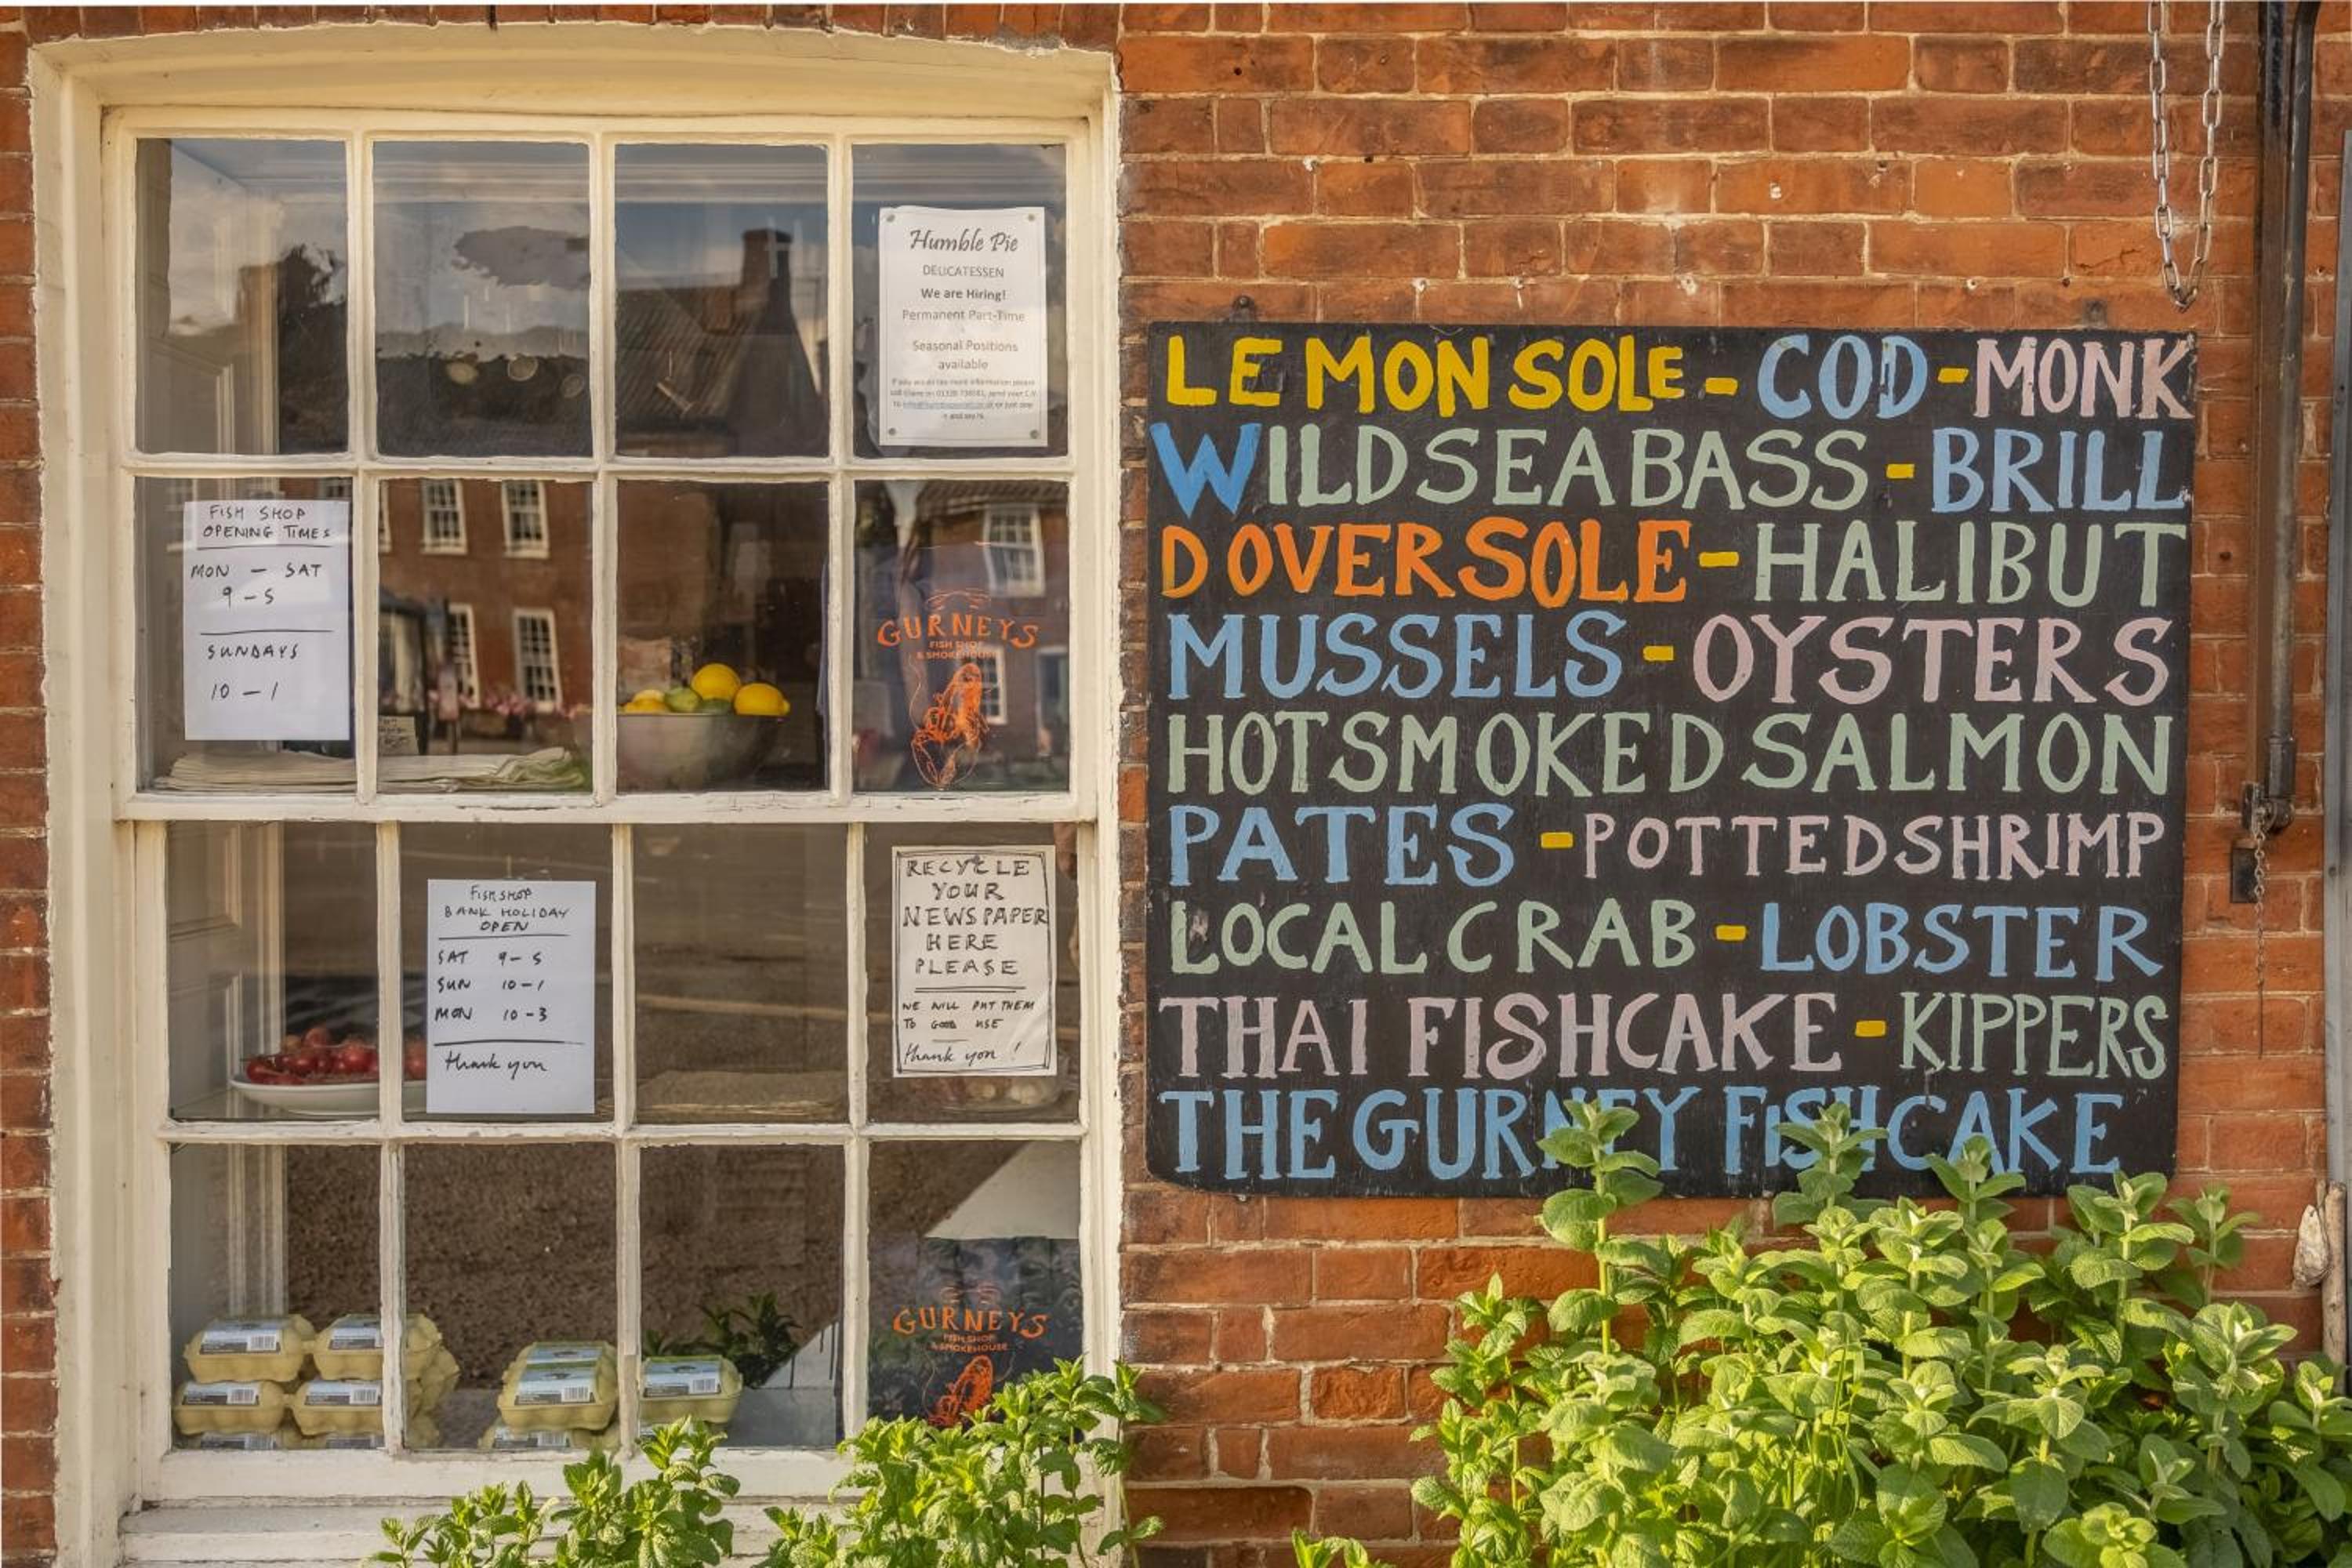 Humble Pie
DELICATESSEN
We are Hiring!
Permanent Part-Time
Seasonal Positions
available
If you would like more information please
FISH SHOP
OPENING TIMES
MON - SAT
9 - 5
SUNDAYS
10 - 1
GURNEYS
FISH SHOP
& SMOKEHOUSE
FISHSHOP
BANK HOLIDAY
OPEN
SAT 9 - 5
SUN 10 - 1
MON 10 - 3
thank you
RECYCLE
YOUR
NEWSPAPER
HERE
PLEASE
WE WILL PUT THEM
TO GOOD USE
thank you!
GURNEYS
FISH SHOP
& SMOKEHOUSE
LEMON SOLE - COD - MONK
WILD SEABASS - BRILL
DOVER SOLE - HALIBUT
MUSSELS - OYSTERS
HOT SMOKED SALMON
PATES - POTTED SHRIMP
LOCAL CRAB - LOBSTER
THAI FISHCAKE - KIPPERS
THE GURNEY FISHCAKE